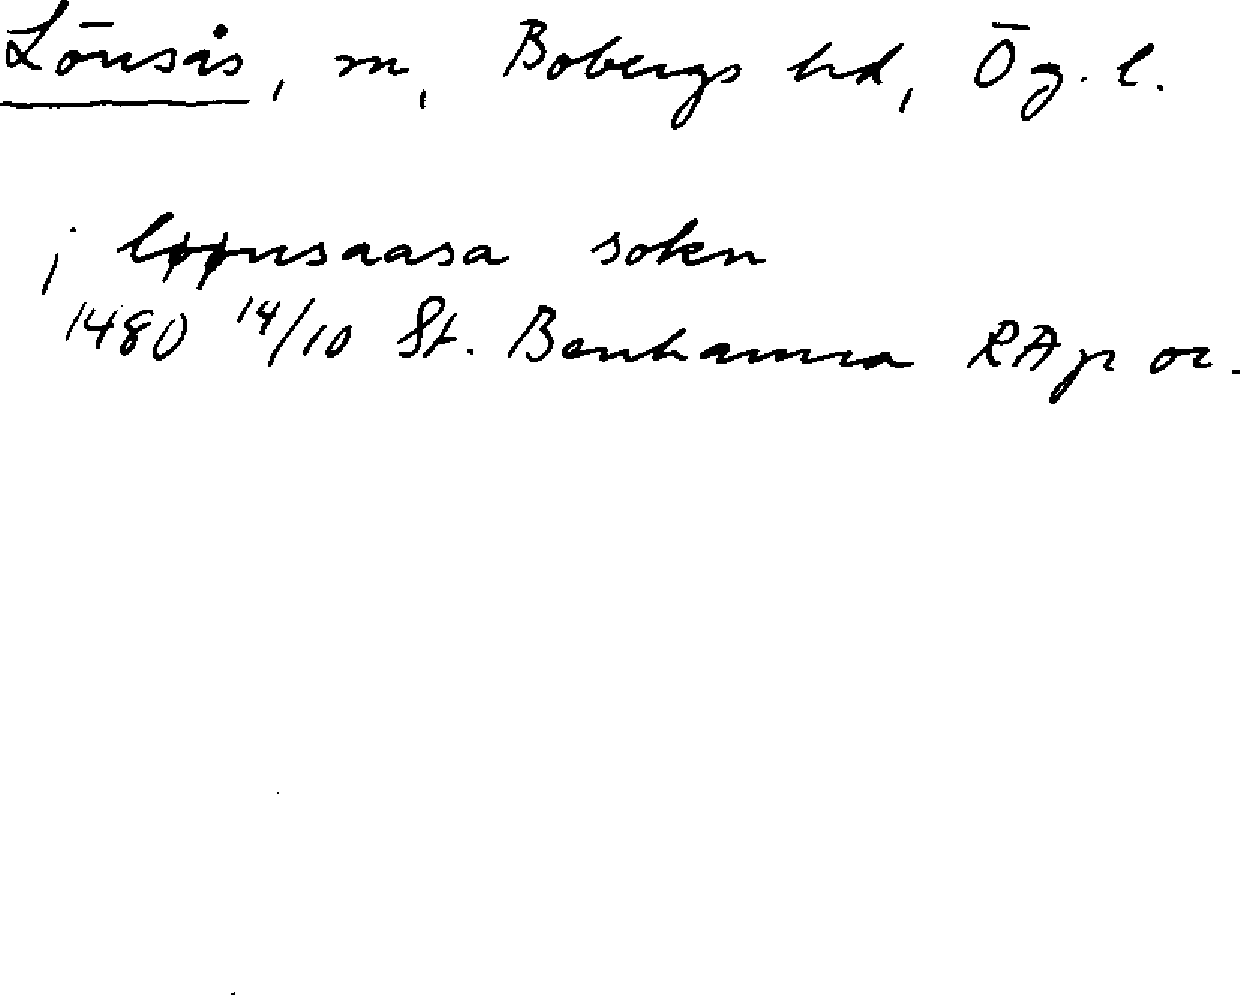 Lönsås, sn, Bobergs hd, Ög. l.
j løønsaasa sokn
1480 14/10 St. Benhamra RAp or.